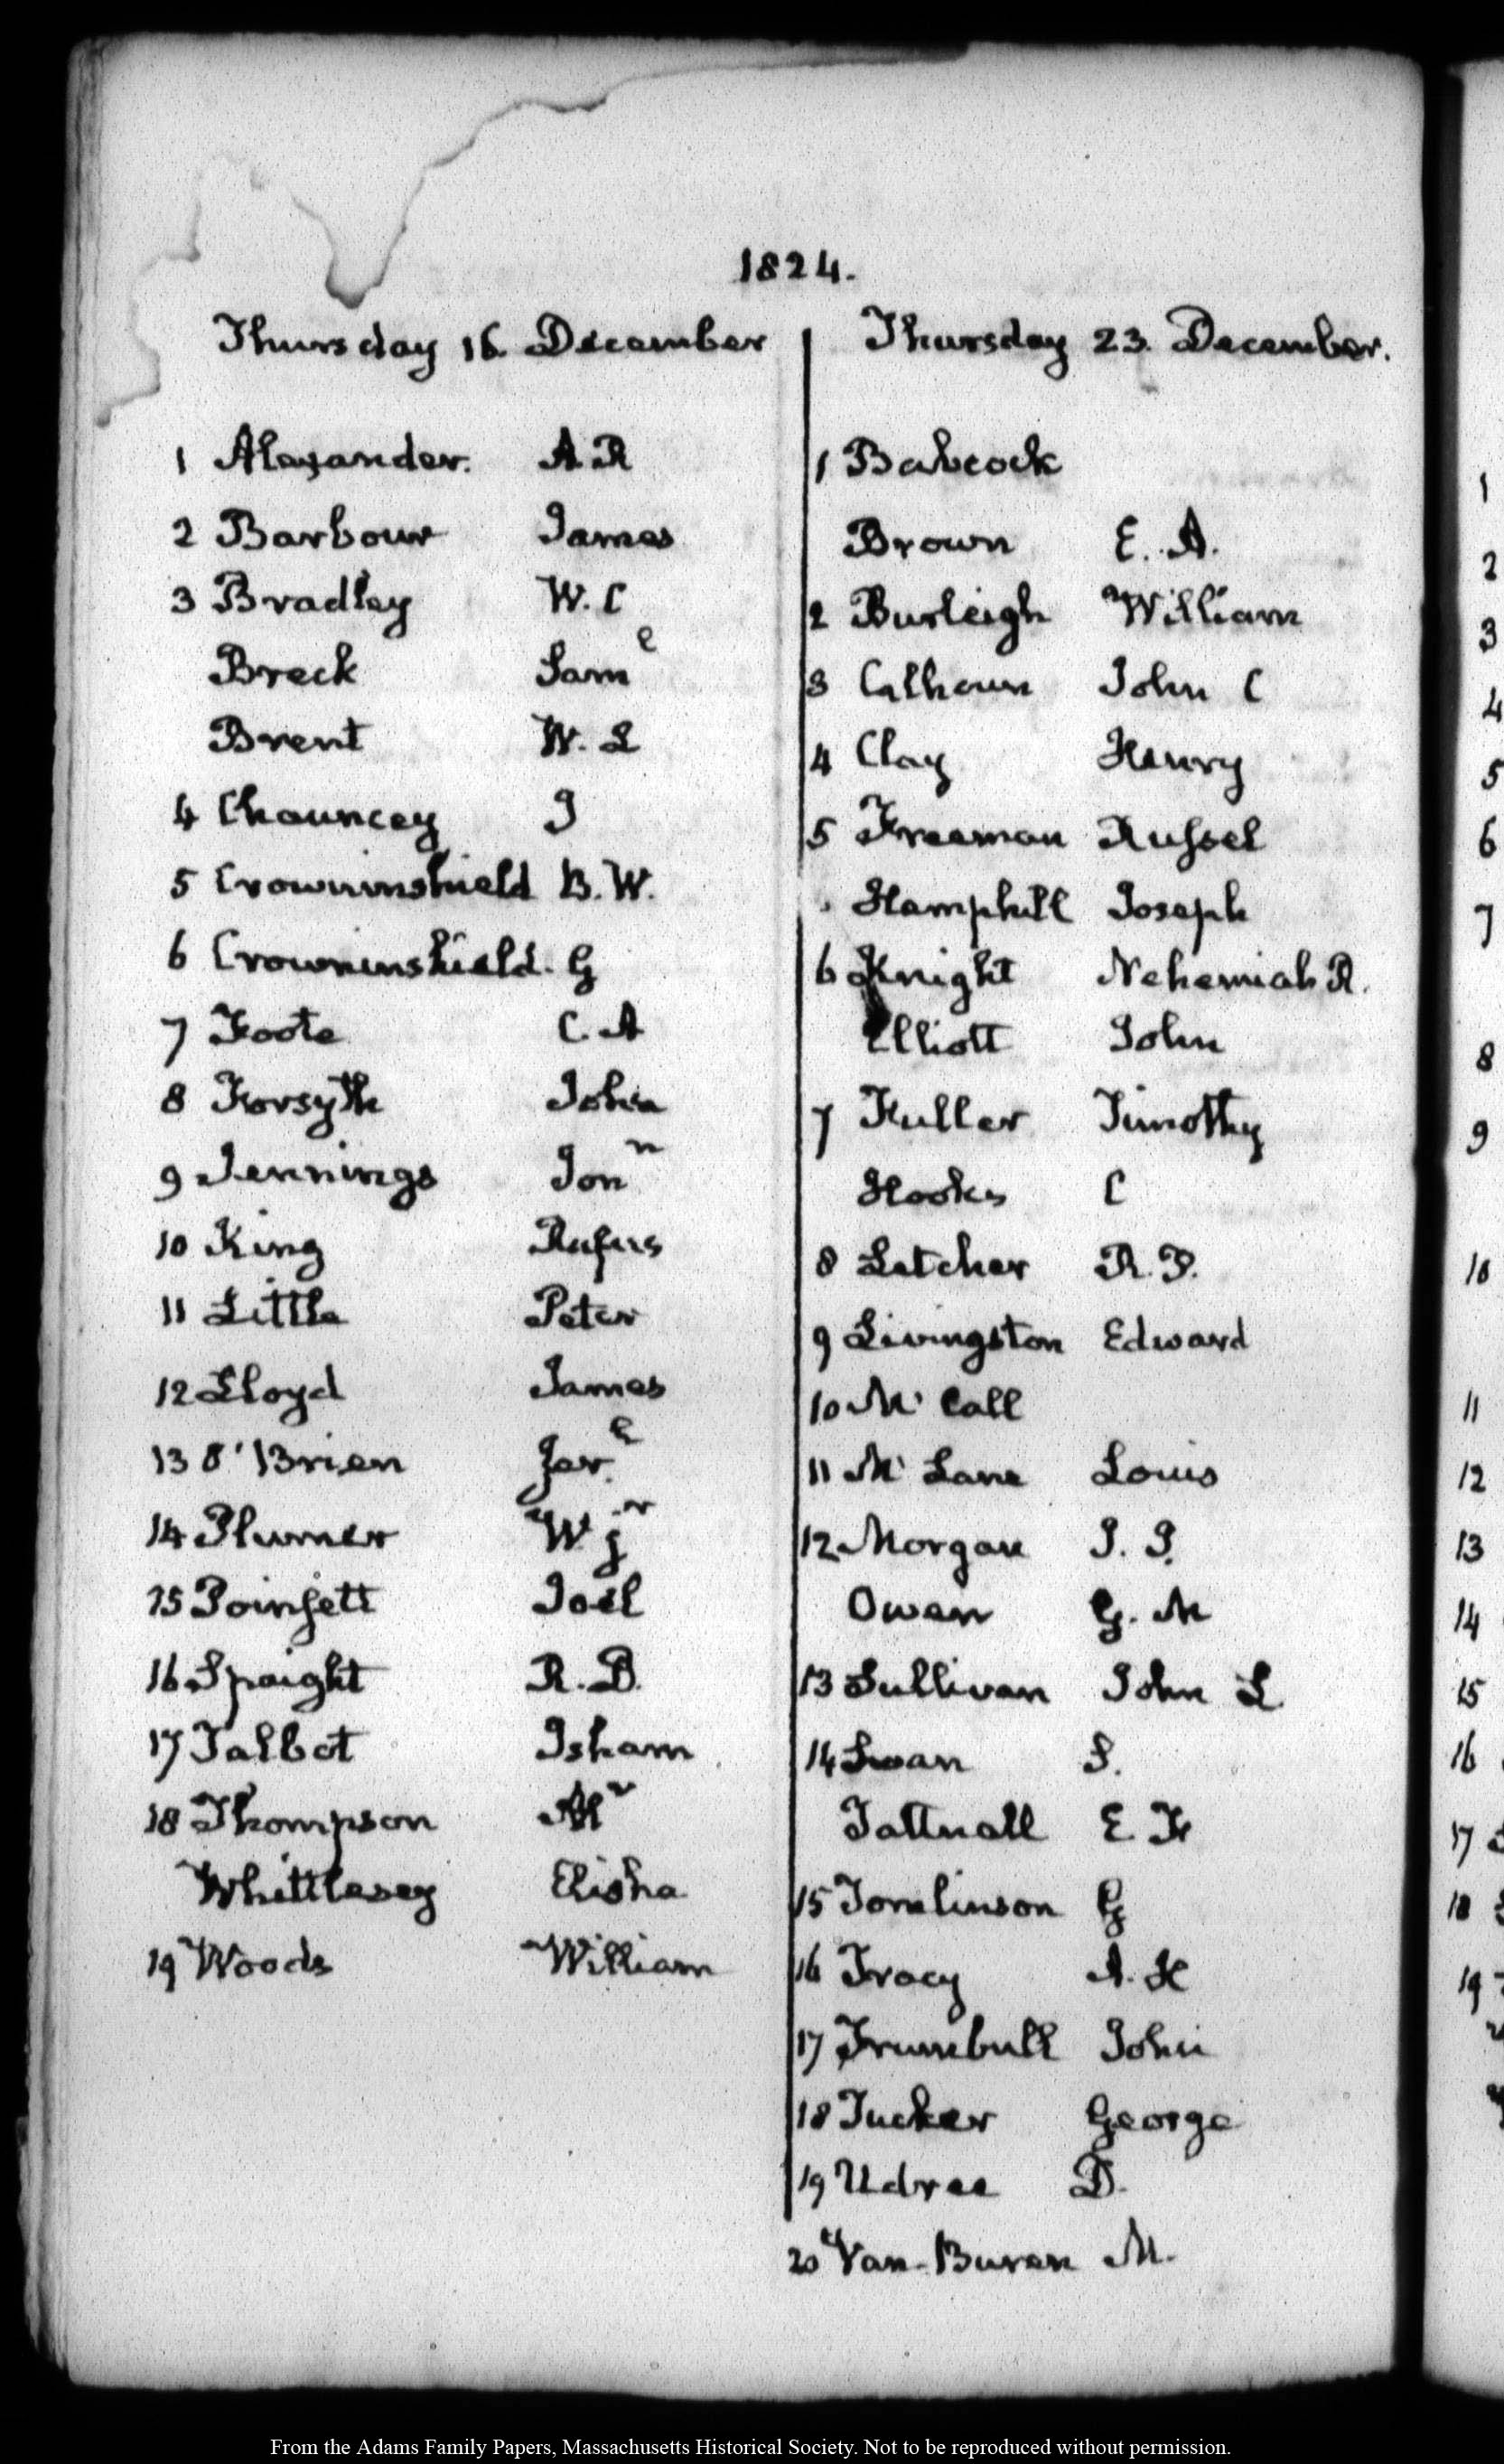 1824.
Thursday 16. December
1 Alexander. A. R
2 Barbour James
3 Bradley W. C
Breck Saml
Brent W. L
4 Chauncey I
5 Crowninshield B. W.
6 Crowninshield. G
7 Foote C. A
8 Forsyth John
9 Jennings Jonn
10 King Rufus
11 Little Peter
12 Lloyd James
13 O'Brien Jere
14 Plumer W. jr
15 Poinsett Joel
16 Spaight R. D.
17 Talbot Isham
18 Thompson Mr
Whittlesey Elisha
19 Woods William
Thursday 23. December.
1 Babcock
Brown E. A.
2 Burleigh William
3 Calhoun John C
4 Clay Henry
5 Freeman Russel
Hemphill Joseph
6 Knight Nehemiah R.
Elliott John
7 Fuller Timothy
Hooks C
8 Letcher R. P.
9 Livingston Edward
10 Mc Call
11 Mc Lane Louis
12 Morgan J. J.
Owen G. M
13 Sullivan John L
14 Swan S.
Tattnall E. F
15 Tomlinson G
16 Tracy A. H
17 Trumbull John
18 Tucker George
19 Udree D.
20 Van-Buren M.
1
2
3
4
5
6
7
8
9
10
11
12
13
14
15
16
17
18
19
From the Adams Family Papers, Massachusetts Historical Society. Not to be reproduced without permission.